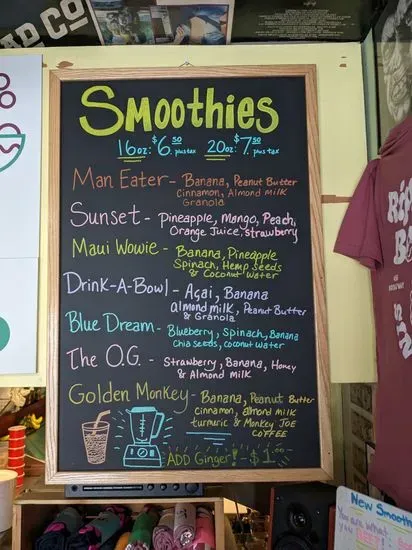 AD CO
Smoothies
16oz: $6.50 plus tax 20oz: $7.50 plus tax
Man Eater - Banana, Peanut Butter
Cinnamon, Almond Milk
Granola
Sunset - Pineapple, Mango, Peach,
Orange Juice, strawberry
Maui Wowie - Banana, Pineapple
Spinach, Hemp Seeds
& Coconut Water
Drink-A-Bowl - Açai, Banana
almond milk, Peanut Butter
& Granola
Blue Dream - Blueberry, Spinach, Banana
Chia Seeds, coconut water
The O.G. - Strawberry, Banana, Honey
& Almond milk
Golden Monkey - Banana, Peanut Butter
cinnamon, almond milk
turmeric & Monkey JOE
COFFEE
ADD Ginger! - $1.00
New Smooth
You are What
you